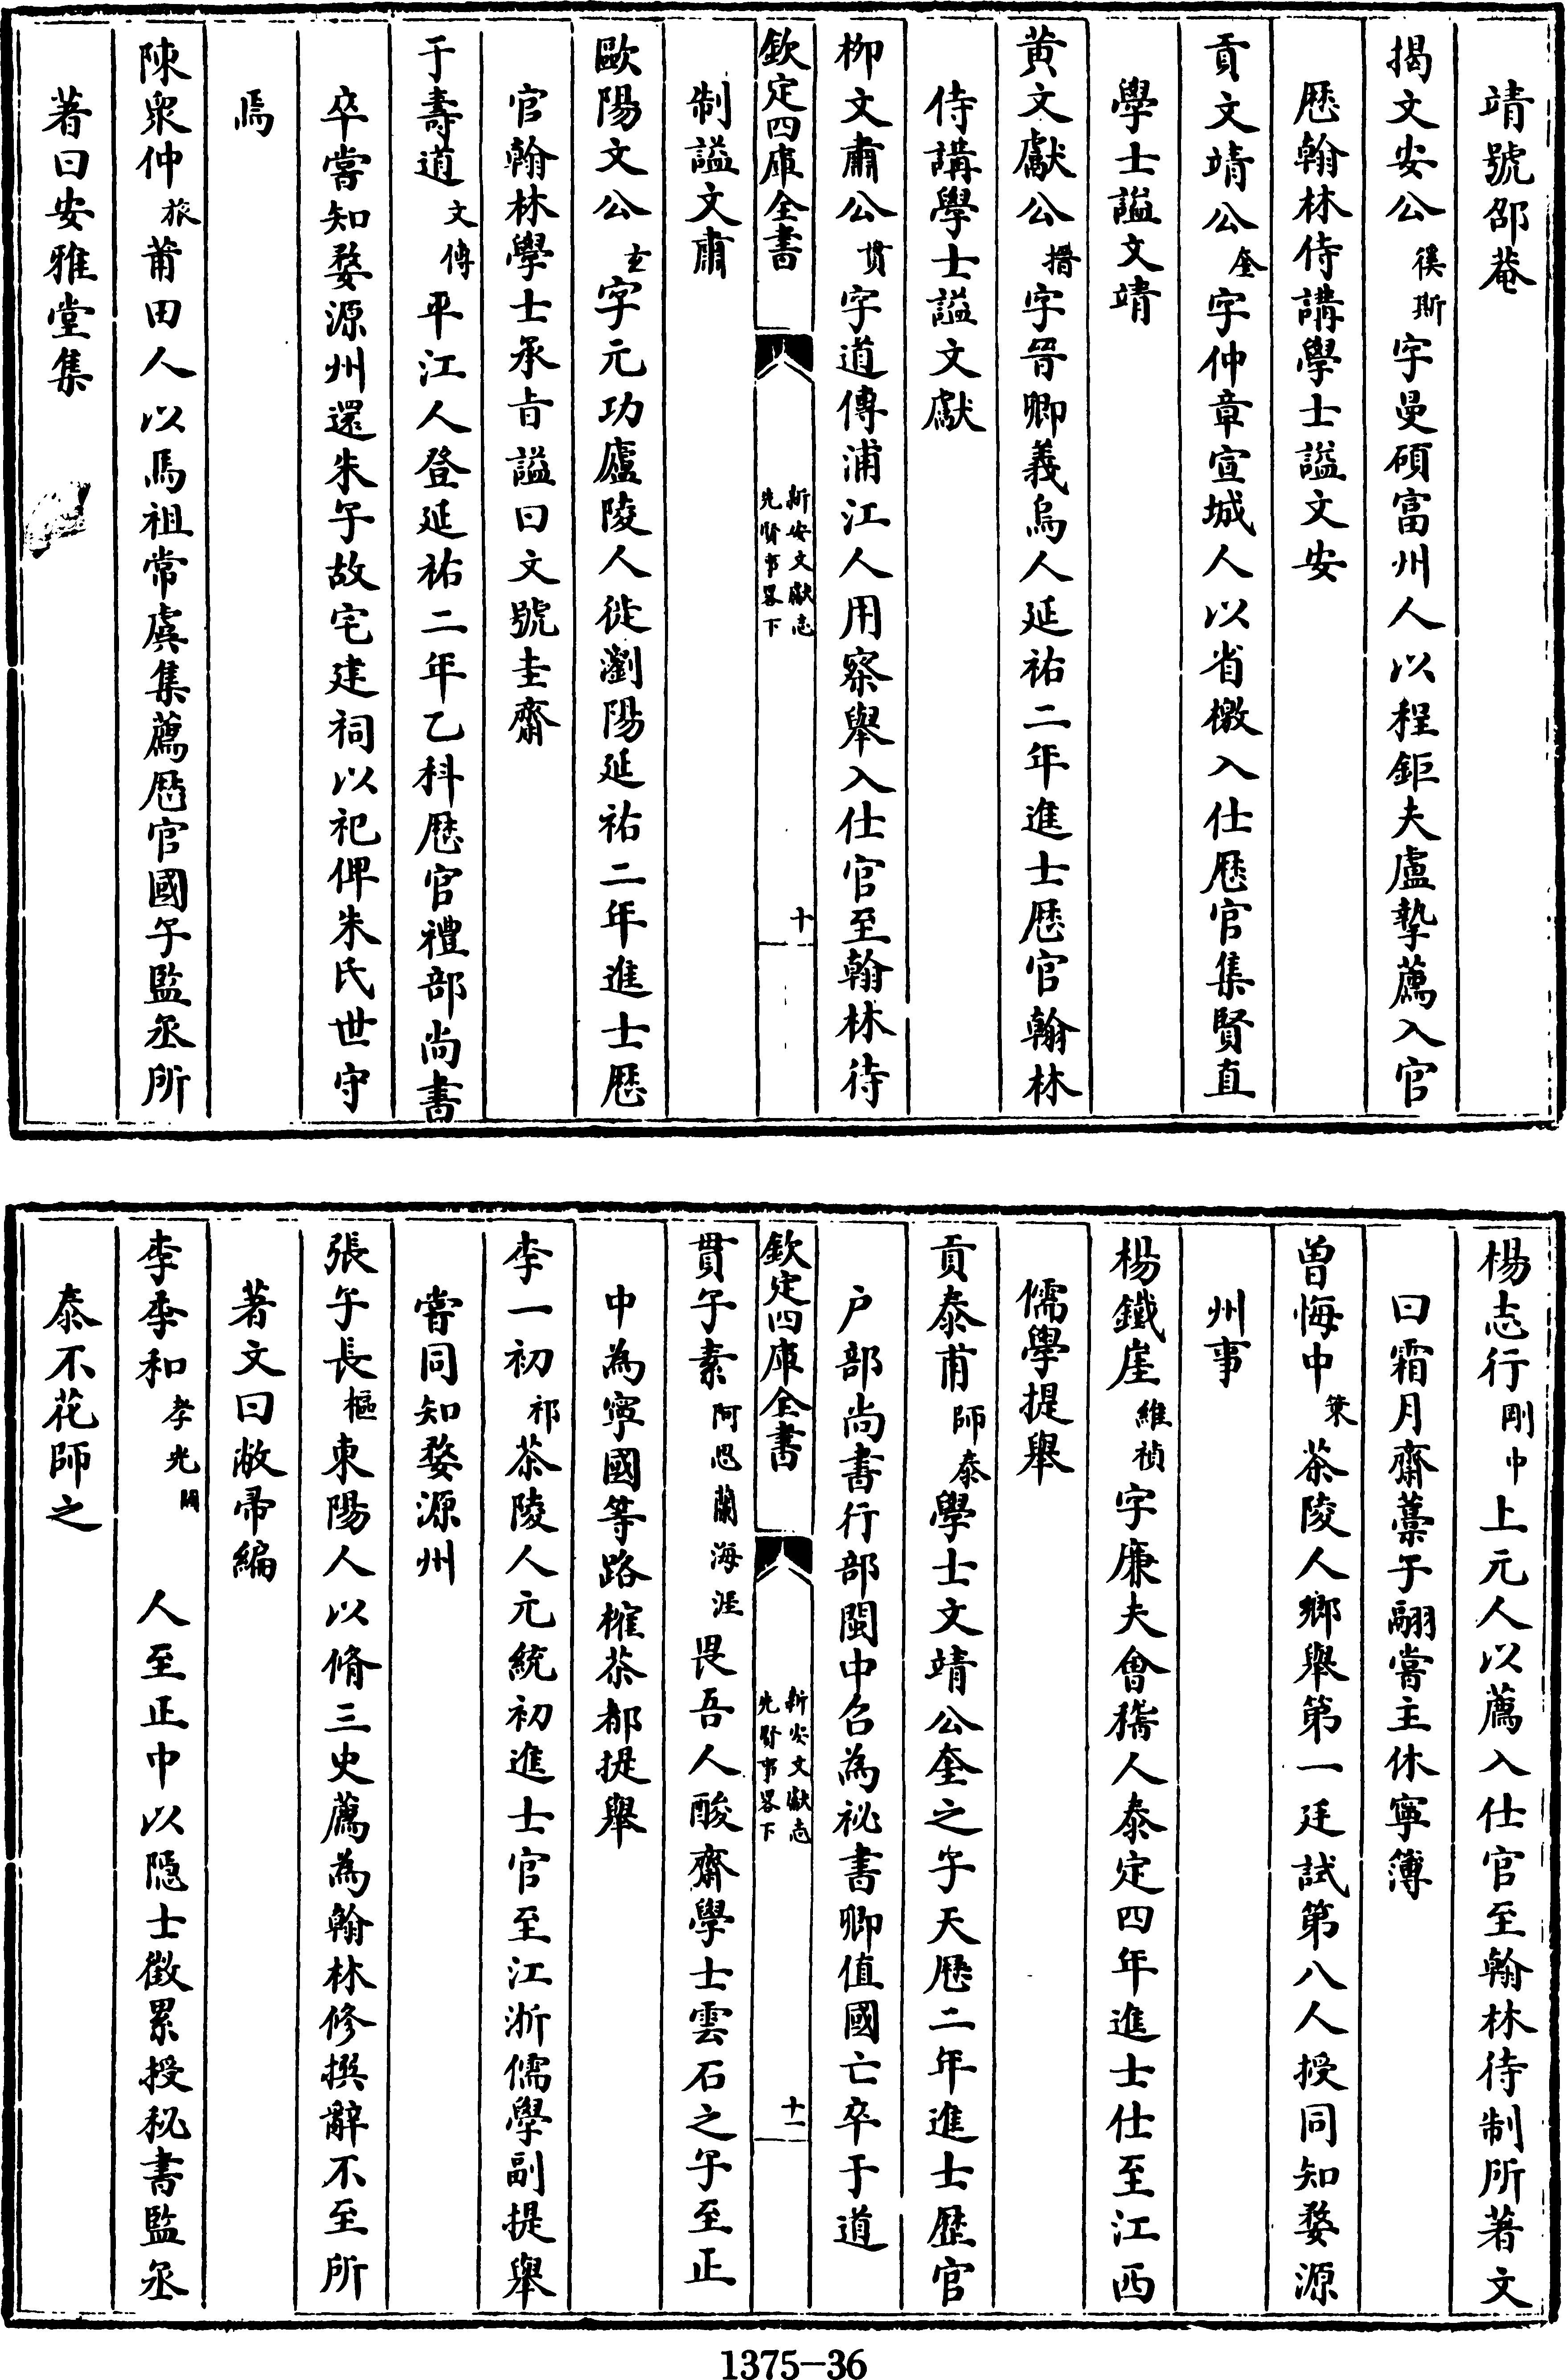 靖號邵菴
揭文安公徯斯字曼碩富州人以程鉅夫盧摯薦入官
歷翰林侍講學士諡文安
貢文靖公奎字仲章宣城人以省檄入仕歷官集賢直
學士諡文靖
黃文獻公搢字晉卿義烏人延祐二年進士歷官翰林
侍講學士諡文獻
柳文肅公貫字道傳浦江人用察舉入仕官至翰林待
欽定四庫全書
新安文獻志
先賢事畧下
十
制諡文肅
歐陽文公玄字元功廬陵人徙瀏陽延祐二年進士歷
官翰林學士承旨諡曰文號圭齋
于壽道文傳平江人登延祐二年乙科歷官禮部尚書
卒嘗知婺源州還朱子故宅建祠以祀俾朱氏世守
焉
陳衆仲旅莆田人以馬祖常虞集薦歷官國子監丞所
著曰安雅堂集
楊志行剛中上元人以薦入仕官至翰林待制所著文
曰霜月齋藁子翮嘗主休寧簿
曾悔中策茶陵人鄉舉第一廷試第八人授同知婺源
州事
楊鐵崖維禎字廉夫會稽人泰定四年進士仕至江西
儒學提舉
貢泰甫師泰學士文靖公奎之子天歷二年進士歷官
户部尚書行部閩中召為祕書卿值國亡卒于道
欽定四庫全書
新安文獻志
先賢事畧下
十一
貫子素阿思蘭海涯畏吾人酸齋學士雲石之子至正
中為寧國等路榷茶都提舉
李一初祁茶陵人元統初進士官至江浙儒學副提舉
嘗同知婺源州
張子長樞東陽人以脩三史薦為翰林修撰辭不至所
著文曰敝帚編
李季和孝光闕人至正中以隱士徵累授秘書監丞
泰不花師之
1375-36